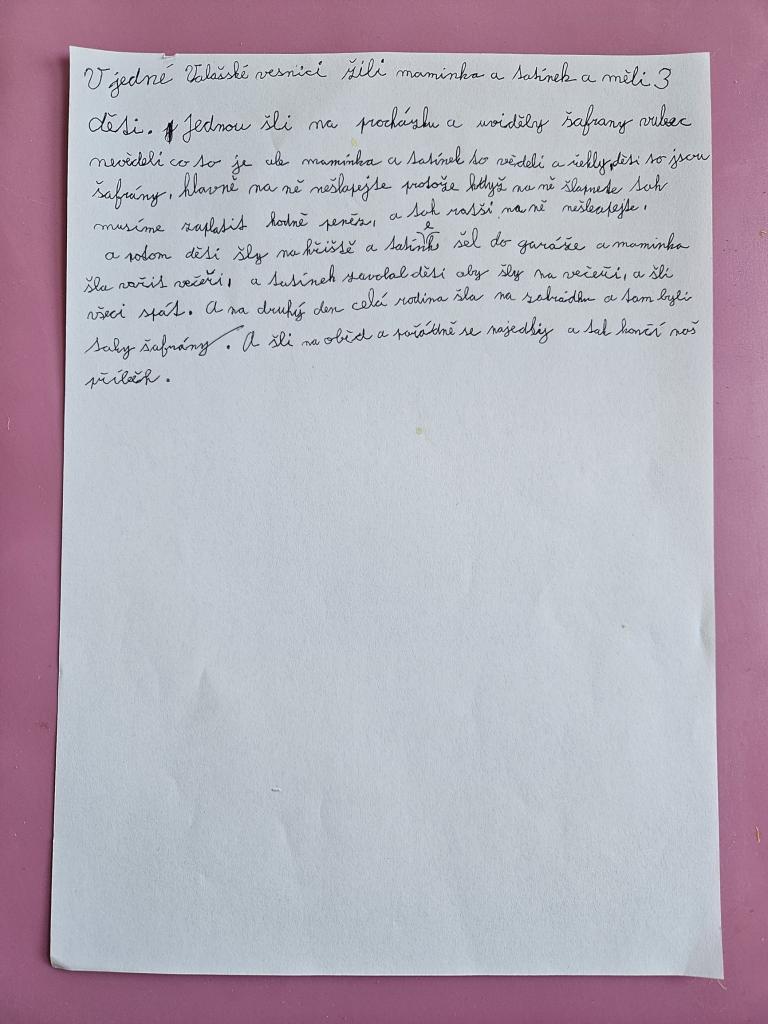 V jedné Valašské vesnici žili maminka a tatínek a měli 3
děti. Jednou šli na procházku a uviděly šafrany vubec
nevěděli co to je ale maminka a tatínek to věděli a řekly, děti to jsou
šafrány, hlavně na ně nešlapejte protože když na ně šlapnete tak
musíme zaplatit hodně peněz, a tak ratši na ně nešlapejte.
a potom děti šly na hřiště a tatínek šel do garáže a maminka
šla vařit večeři, a tatínek zavolal děti aby šly na večeři, a šli
všeci spát. A na druhý den celá rodina šla na zahrádku a tam byli
taky šafrány. A šli na oběd a pořádně se najedly a tak končí náš
příběh.